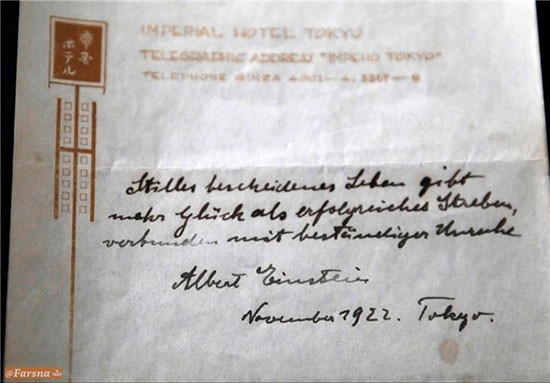 帝国
ホテル
IMPERIAL HOTEL TOKYO
TELEGRAPHIC ADDRESS "IMPEHO TOKYO"
TELEPHONE GINZA
Stilles bescheidenes Leben gibt
mehr Glück als erfolgreiches Streben,
verbunden mit beständiger Unruhe
Albert Einstein
November 1922. Tokyo.
@Farsna